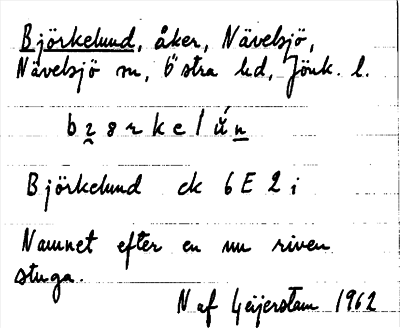 Björkelund, åker, Nävelsjö,
Nävelsjö sn, Östra hd, Jönk. l.
Björkelund ek 6E 2 i
Namnet efter en nu riven
stuga.
N af Geijerstam 1962